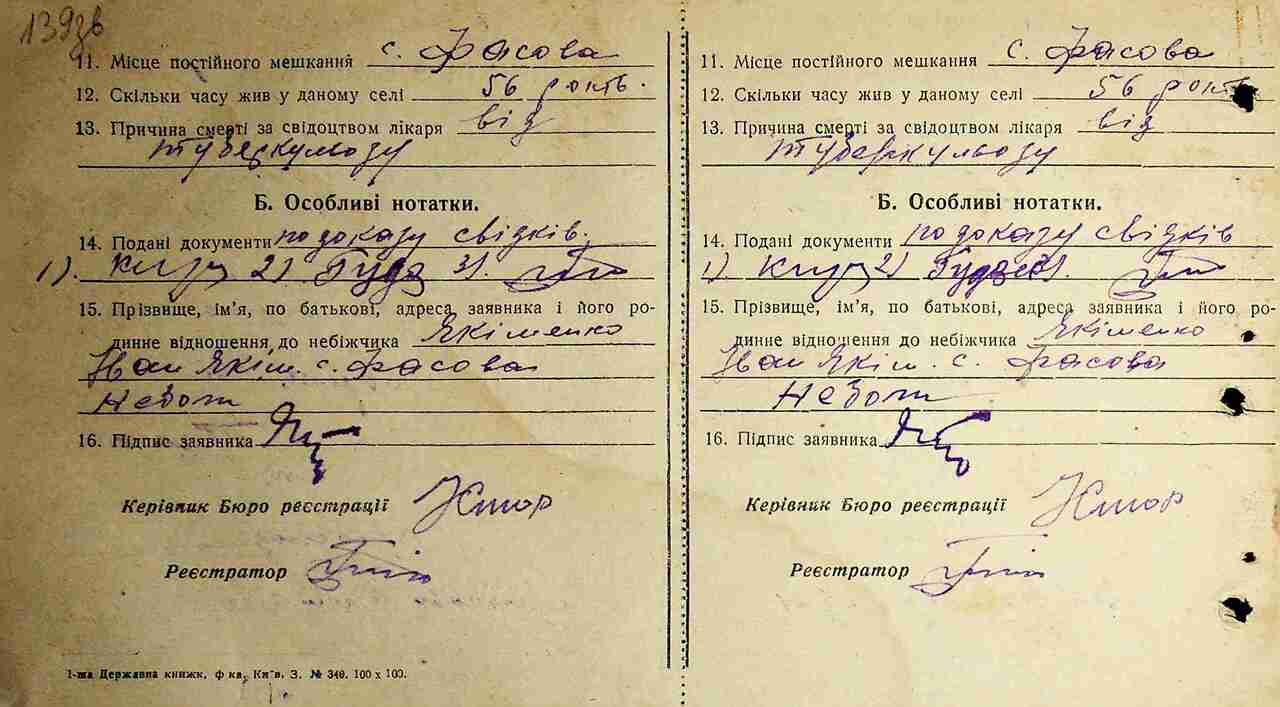 139зв
11. Місце постійного мешкання с. Фасова
12. Скільки часу жив у даному селі 56 років.
13. Причина смерті за свідоцтвом лікаря від
туберкульозу
Б. Особливі нотатки.
14. Подані документи по доказу свідків.
1). 2)
15. Прізвище, ім'я, по батькові, адреса заявника і його ро-
динне відношення до небіжчика Якіменко
Іван Якім. с. Фасова
Небож
16. Підпис заявника
Керівник Бюро реєстрації
Реєстратор
1-ша Державна книжк. ф ка, Київ, З. № 340. 100 х 100.
11. Місце постійного мешкання с. Фасова
12. Скільки часу жив у даному селі 56 років
13. Причина смерті за свідоцтвом лікаря від
туберкульозу
Б. Особливі нотатки.
14. Подані документи по доказу свідків
1) 2)
15. Прізвище, ім'я, по батькові, адреса заявника і його ро-
динне відношення до небіжчика Якіменко
Іван Якім. с. Фасова
Небож
16. Підпис заявника
Керівник Бюро реєстрації
Реєстратор